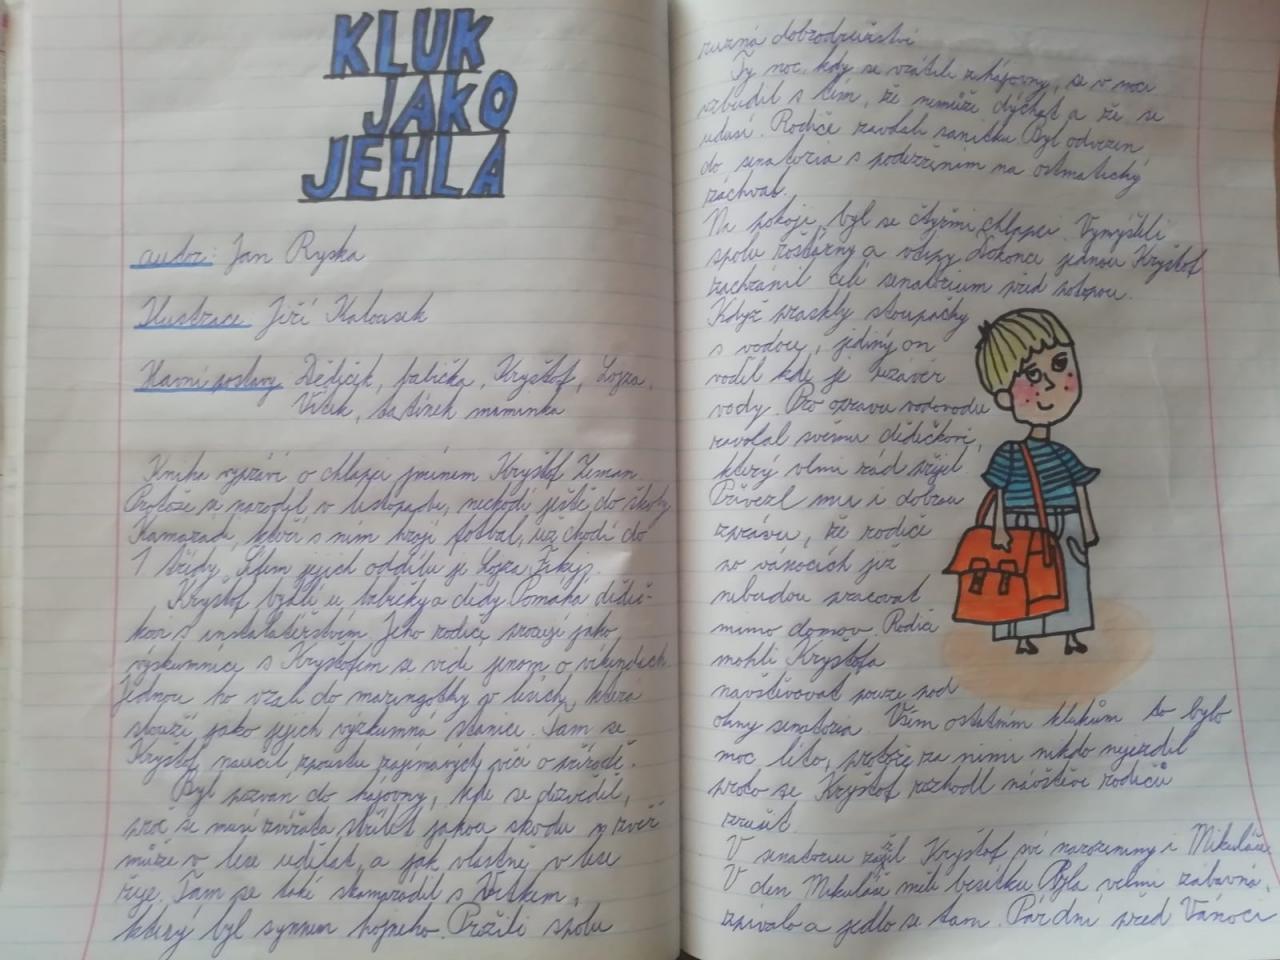 KLUK
JAKO
JEHLA
autor: Jan Ryska
Ilustrace: Jiří Kalousek
Hlavní postavy: Dědičík, babička, Kryštof, Lojza,
Vítek, tatínek maminka
Kniha vypráví o chlapci jménem Kryštof Zeman.
Protože se narodil v listopadu, nechodí ještě do školy
Kamarádi, kteří s ním hrají fotbal, už chodí do
1 třídy. Šéfem jejich oddílu je Lojza
Kryštof bydlí u babičky a dědy Pomáhá dědeč-
kovi s instalatérstvím. Jeho rodiče pracují jako
výzkumníce s Kryštofem se vidí jenom o víkendech
Jednou ho vzali do maringotky v lesích, která
slouží jako jejich výzkumná stanice. Tam se
Kryštof naučil spoustu zajímavých věcí o přírodě.
Byl pozván do hájovny, kde se dozvěděl,
proč se musí zvířata střílet jakou škodu zvěř
může v lese udělat, a jak vlastně v lese
žije. Tam se také skamarádil s Vítkem,
který byl synem hajného. Prožili spolu
různá dobrodružství
Tý noc, kdy se vrátili z hájovny, se v noci
vzbudil s tím, že nemůže dýchat a že se
udusí. Rodiče zavolali sanitku Byl odvezen
do senatoria s podezřením na astmatický
záchvat.
Na pokoji byl se čtyřmi chlapci. Vymýšleli
spolu rošťárny a vtipy Dokonce jednou Kryštof
zachránil celé senatorium před potopou.
Když praskly stoupačky
s vodou, jediný on
voděl kde je uzávěr
vody. Pro opravu vodovodu
zavolal svému dědečkovi,
který velmi rád přijel.
Přivezl mu i dobrou
zprávu, že rodiče
po vánocích již
nebudou pracovat
mimo domov. Rodiče
mohli Kryštofa
navštěvovat pouze pod
okny senatoria. Všem ostatním klukům to bylo
moc líto, protože za nimi nikdo nejezdil
proto se Kryštof rozhodl návštěvi rodičů
zrušit.
V senatoriu zažil Kryštof své narozeniny i Mikuláše
V den Mikuláše měli besídku Byla velmi zábavná,
zpívalo a jedlo se tam. Pár dní před Vánoci